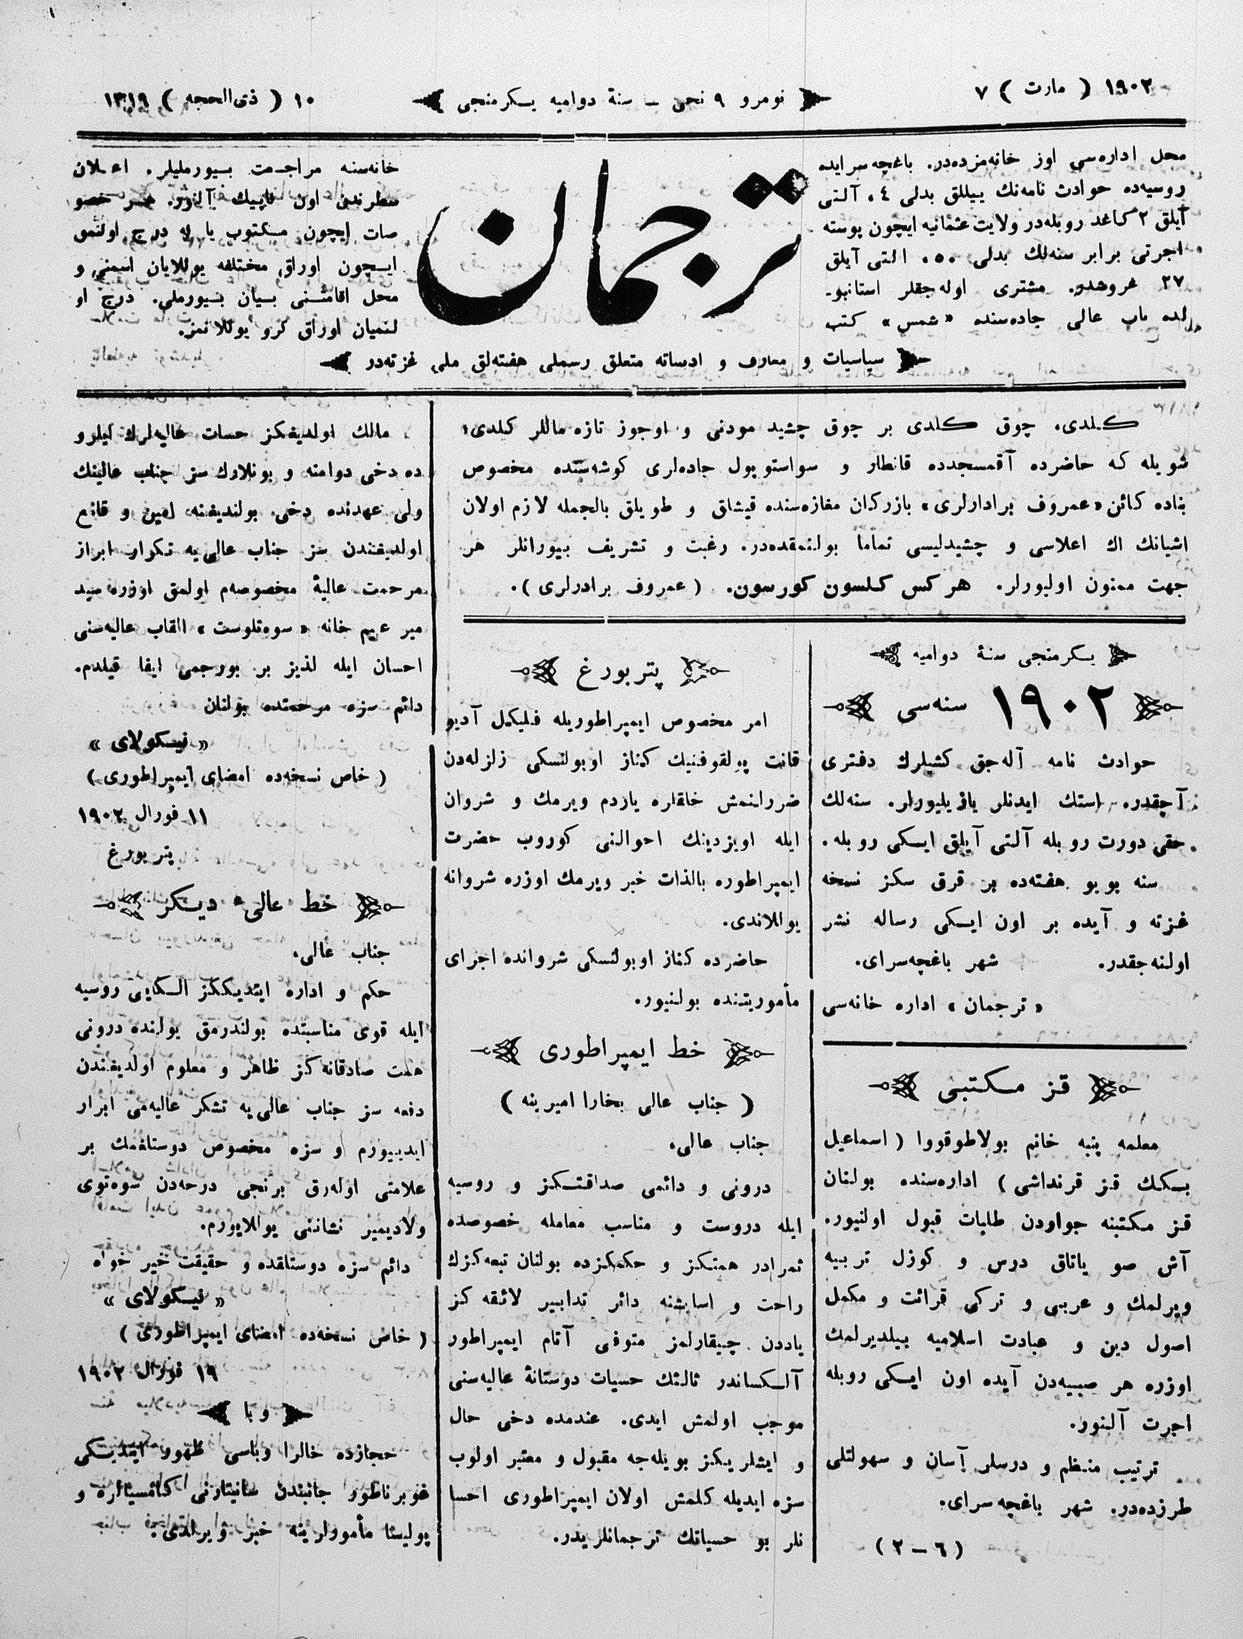 ١٩٠٢ ( مارت ) ٧
نومرو ٩ نجی ــ سنهٔ دوامیه یـکرمنجی
١٠ ( ذی الحجه ) ١٣١٩
محل اداره‌سی اوز خانه‌مزده‌در. باغچه سرایده
روسیه‌ده حوادث نامه‌نك ییللق بدلی ٤، آلتی
آیلق ٢ كاغد روبله‌در ولایت عثمانیه ایچون پوسته
اجرتی برابر سنه‌لك بدلی ٥٠، التی آیلق
٢٧ غروشدر. مشتری اوله‌جقلر استانبو-
لده باب عالی جاده‌سنده «شمس» کتب
ترجمان
خانه‌سنه مراجـعت بـیورملیلر. اعـلان
سطرندن اون قاپیك آلنور. هـر خصو
صات ایچون مـکتوب یازیله درج اولنمق
ایـچون اوراق مختلفه یوللایان اسمنی و
محل اقامتـنی بـیان بـیورملی. درج او
لنمیان اوراق کرو یوللانمز.
سیاسیات و معارف و ادبیاته متعلق رسملی هفته‌لق ملی غزته‌در
كـلدی، چوق كـلدی بر چوق چشید مودنی و اوجوز تازه ماللر کلدی؛
شویله که حاضرده آقمسجدده قانطار و سواستوپول جاده‌لری کوشه‌سنده مخصوص
بناده کائن «عمروف برادارلری» بازرکان مغازه‌سنده قیشلق و طویلق بالجمله لازم اولان
اشیانك اك اعلاسی و چشیدلیسی تماما بولنمقده‌در. رغبت و تشریف بیورانلر هر
جهت ممنون اولیورلر. هرکس کـلسون کورسون. ( عمروف برادرلری ).
یـکرمنجی سنهٔ دوامیه
١٩٠٢ سنه‌سی
حوادث نامه آله‌جق کشیلرك دفتری
آچقدر. استك ایدنلر یازیلیورلر. سنه‌لك
حقی دورت روبله آلتی آیلق ایـکی روبله.
سنه بویو هفته‌ده بر قرق سکز نسخه
غزته و آیده بر اون ایـکی رساله نشر
اولنه‌جقدر. شهر باغچه‌سرای.
«ترجمان» اداره خانه‌سی
قـز مـکتبی
معلمه پنبه خانم بولاطوقووا ( اسماعیل
بـكـك قـز قرنداشی ) اداره‌سنده بولنان
قـز مـکتبنه جواردن طلبات قبول اولنیور.
آش صو یاتاق درس و کوزل تربـیه
ویرلمك و عربی و ترکی قرائت و مکمل
اصول دین و عبادت اسلامیه بیلدیرلمك
اوزره هر صبیه‌دن آیده اون ایـکی روبله
اجرت آلـنور.
ترتیب منـظم و درسلر آسان و سهولتلی
طرزده‌در. شهر باغچه سرای.
(٦ – ٢)
پتر بورغ
امر مخصوص ایمپراطوریله فلیکل آدیو
قانت پولقوفنیك کناز اوبولنسکی زلزله‌دن
ضررلنمش خلقلره یاردم ویرمك و شروان
ایله اویزدینك احوالنی کوروب حضرت
ایمپراطوره بالذات خبر ویرمك اوزره شروانه
یوللاندی.
حاضرده کناز اوبولنسکی شروانده اجرای
مأموریتنده بولنیور.
خط ایمپراطوری
( جناب عالی بخارا امیرینه )
جناب عالی.
درونی و دائمی صداقتـکـز و روسیه
ایله دروست و مناسب معامله خصوصده
ثمرادر همتـکز و حکمکزده بولنان تبعه‌کزك
راحت و اسایشنه دائر تدابیر لائقه‌کز
یاددن چـیقارلمز متوفی آتام ایمپراطور
آلـکساندر ثالثك حسیات دوستانهٔ عالیه‌سنی
موجب اولمش ایدی. عندمده دخی حال
و ایشلریـکز بویله‌جه مقبول و معتبر اولوب
سزه ایدیله کلمش اولان ایمپراطوری احسا
نلر بو حسیاتك ترجمانلریدر.
مالك اولدیغکز حسات عالیه‌لرك ایلرو
ده دخی دوامنه و بونلارك سز جناب عالینك
ولی عهدنده دخی بولندیغنه امین و قانع
اولدیغندن سز جناب عالی‌یه تـکرار ابراز
مرحمت عالیهٔ مخصوصه‌م اولمق اوزره سید
میر عـیم خانه «سوه‌تلوست» القاب عالیه‌سنی
احسان ایله لذیز بر بورجمی ایفا قیلدم.
دائم سزه مرحمتده بولنان
«نیـکولای»
( خاص نسخه‌ده امضای ایمپراطوری )
١١ فورال ١٩٠٢
پتر بورغ
خط عالیٔ دیـکر
جناب عالی.
حکم و اداره ایتدیـککز الـکایی روسیه
ایله قوی مناسبتده بولندرمق یولنده درونی
همت صادقانه‌کز ظاهر و معلوم اولدیغندن
دفعه سز جناب عالی‌یه تشکر عالیه‌می ابراز
ایدییورم و سزه مخصوص دوستلغمك بر
علامتی اوله‌رق برنجی درجه‌دن سوه‌توی
ولادیمیر نشاننی یوللایورم.
دائم سزه دوستلقده و حقیقت خیر خواه
«نیـکولای»
( خاص نسخه‌ده امضای ایمپراطوری )
١٩ فورال ١٩٠٢
وبا
حجازده خالرا وباسی ظهور ایتدیـکی
غوبرناطور جانبندن سانیتارنی کامسیالره و
پولیسا مأمورلرینه خبر ویرلدی.